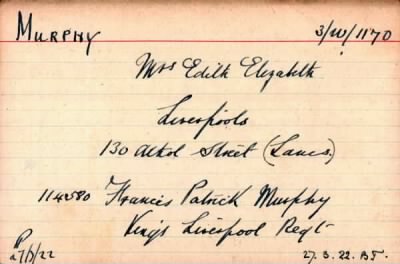 MURPHY 3/W/1170
Mrs Edith Elizabeth
Liverpools
130 Athol Street (Lancs.)
114580 Francis Patrick Murphy
Kings Liverpool Regt
27.3.22. B.F.